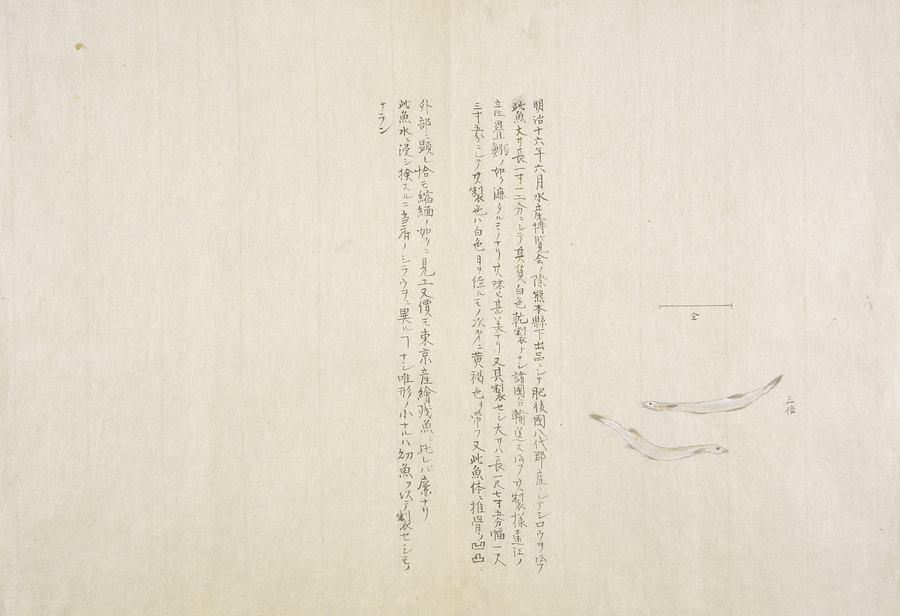 明治十六年六月水産博覧会ノ際熊本縣下出品ニシテ肥後國八代郡産ニシテシロウヲト云フ
此魚大サ長一寸二三分ニシテ其質白色乾製トナシ諸國ヘ輸送スト云フ其製様遠江ノ
立疊鰯ノ如ク漉タルモノナリ其味ヒ甚タ美ナリ又其製セシ大サハ長一尺七寸五分幅一尺
三寸五分ニシテ其製色ハ白色日ヲ経ルモノ次第ニ黄褐色ヲ帯フ又此魚体ニ推骨ノ凹凸
外部ニ顕レ恰モ縮緬ノ如クニ見エ又價モ東京産繪残魚ニ比レバ廉ナリ
此魚水ニ浸シ検スルニ当府ノシラウヲニ異ルヿナシ唯形ノ小ナルハ幼魚ヲ以テ製セシモノ
ナラン
仝
三倍